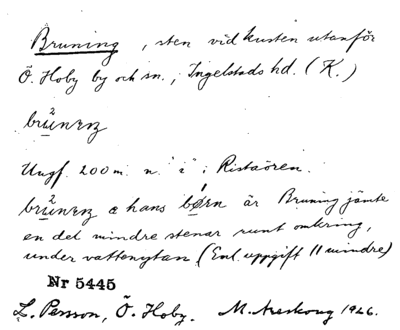 Bruning, sten vid kusten utanför
Ö. Hoby by och sn., Ingelstads hd. (K.)
brünɛnz
Ungf. 200 m. n. "i" i Ristaören.
brünɛnz æ hans børn är Bruning jämte
en del mindre stenar runt omkring,
under vattenytan (Enl. uppgift 11 mindre)
Nr 5445
L. Persson, Ö. Hoby. M. Areskoug 1926.